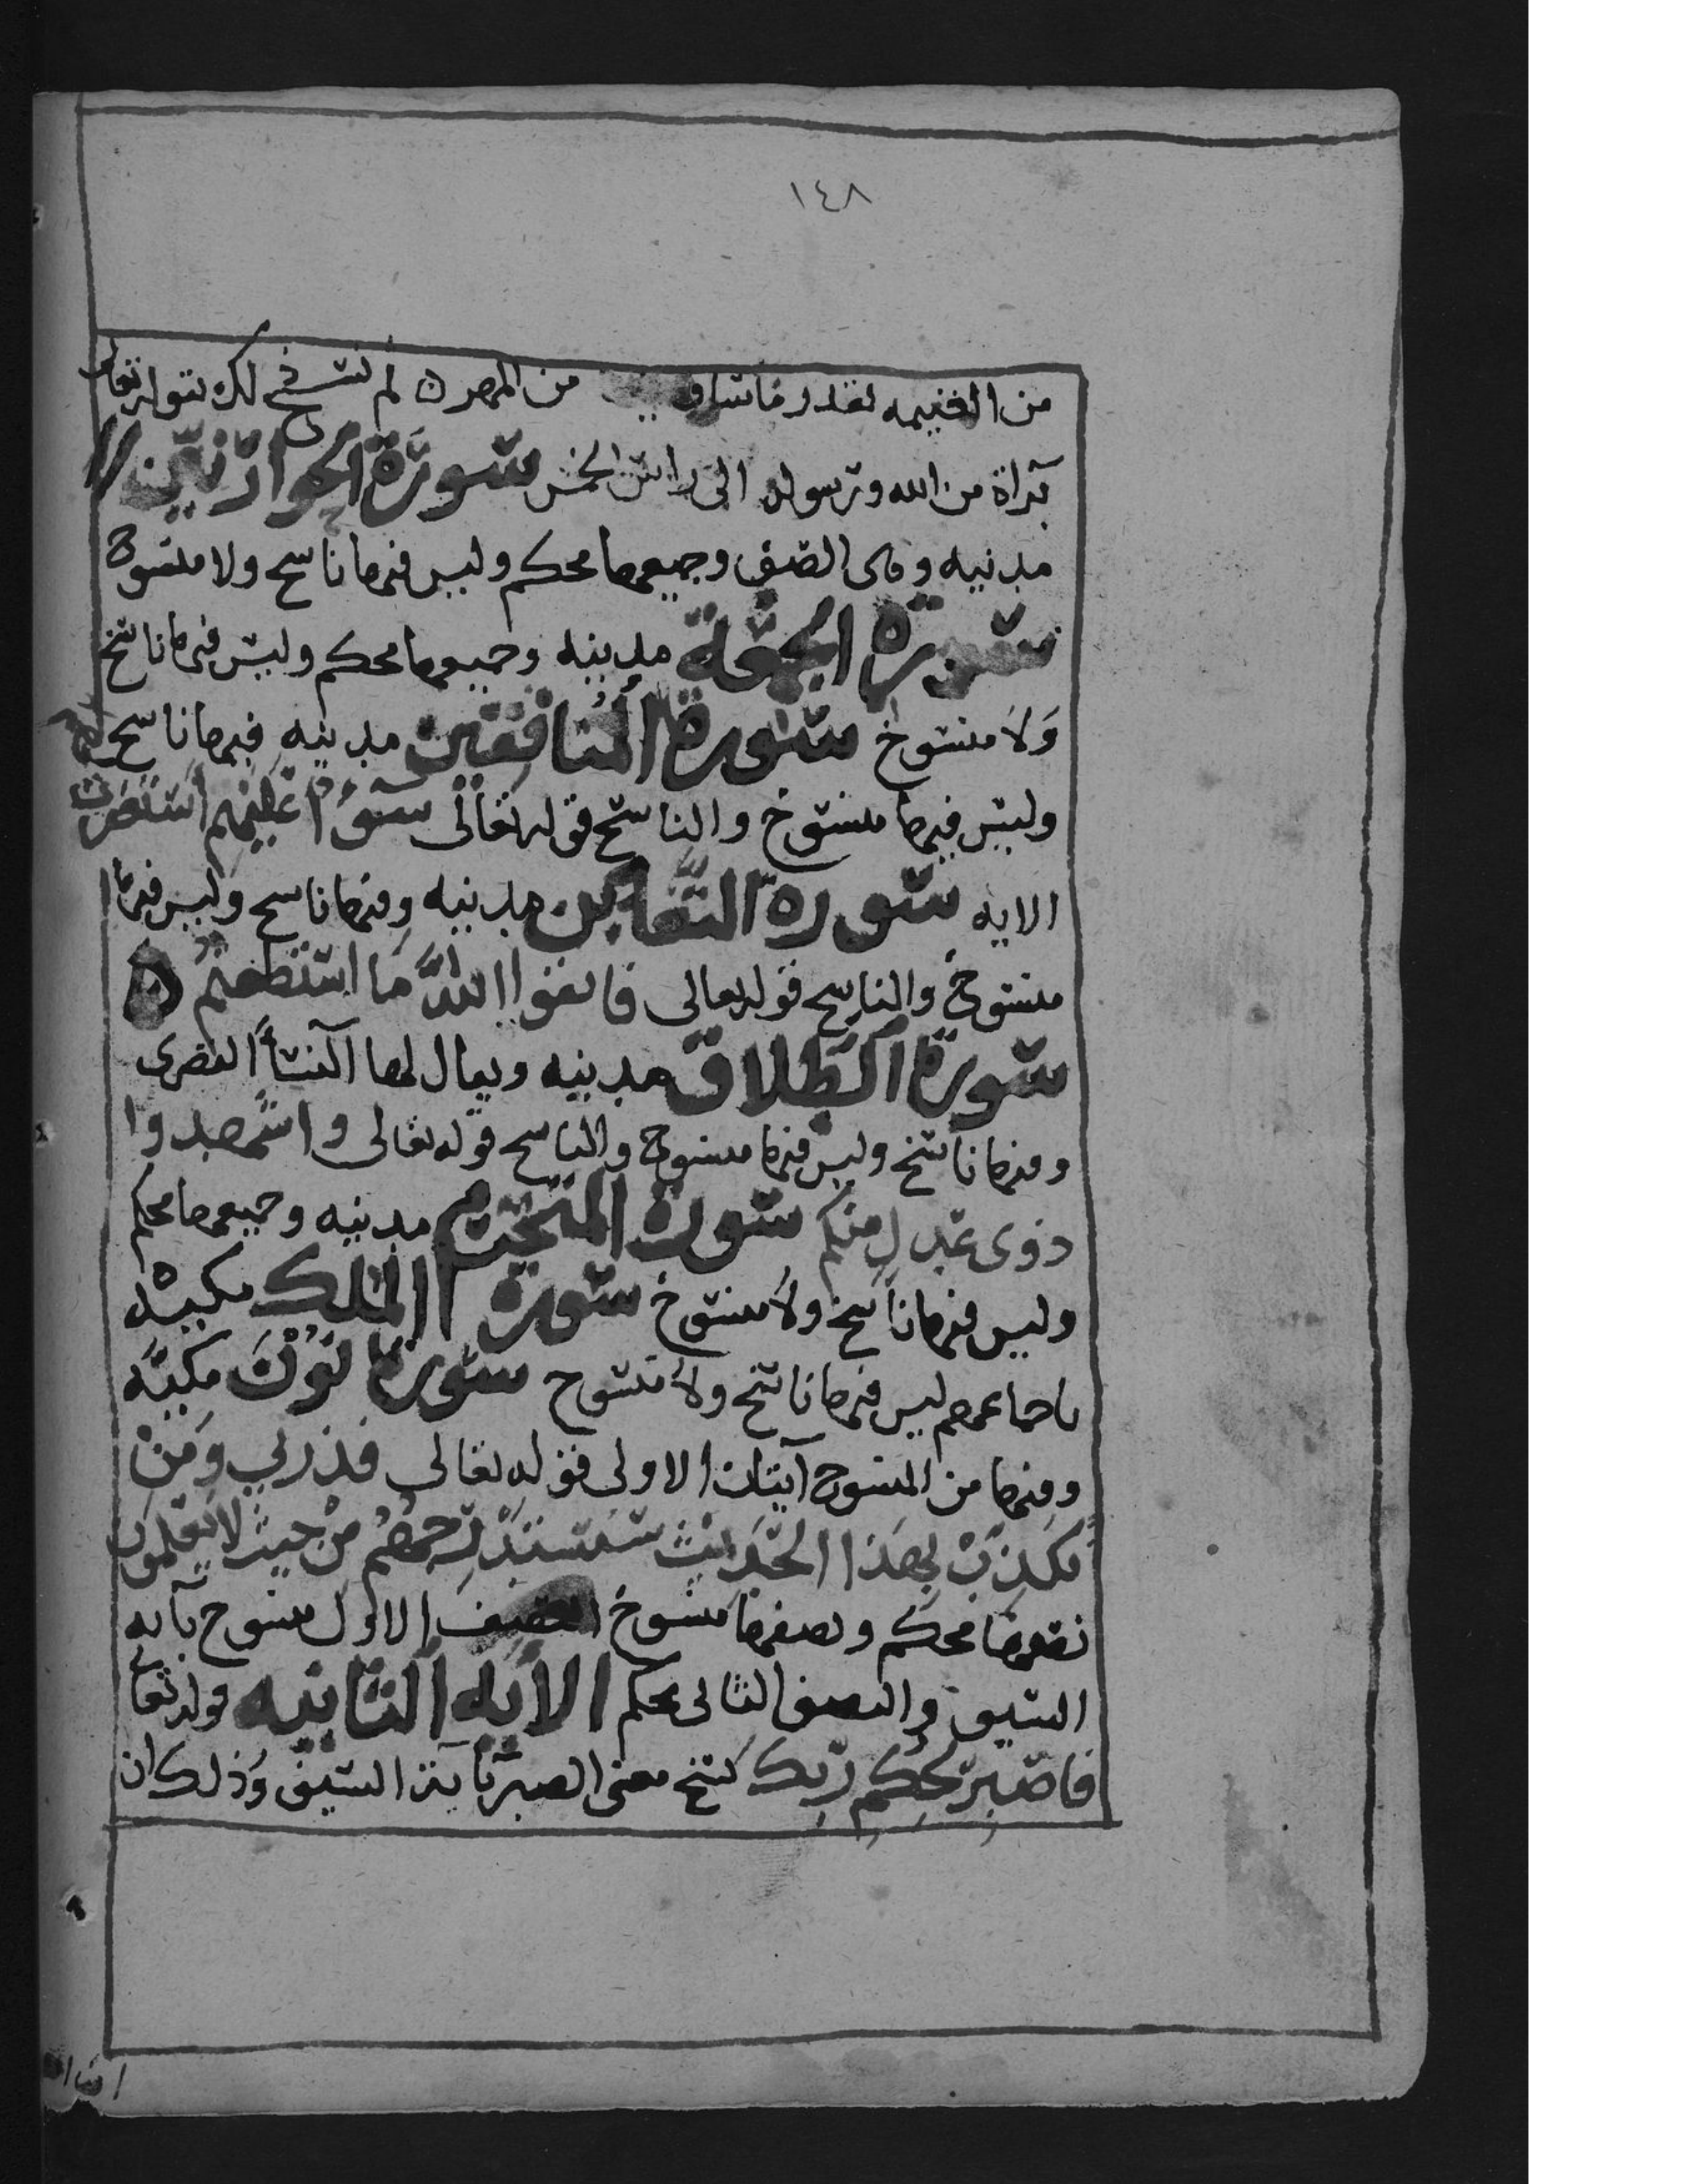 ١٤٨
من الغنيمه بقدر ما ساق من المهر ثم نسخ ذلك بقوله تعالى
براة من الله ورسوله الى راس الخمس سورة الحواريين
مدنيه وهى الصف وجميعها محكم وليس فيها ناسخ ولا منسوخ
سورة الجمعة مدنيه وجميعها محكم وليس فيها ناسخ
وَلا منسوخ سورة المنافقين مدنيه فيها ناسخ
وليس فيها منسوخ والناسخ قوله تعالى سَوَاءٌ عليهم أستغفرت
الايه سورة التغابن مدنيه وفيها ناسخ وليس فيها
منسوخ والناسخ قوله تعالى فاتقوا اللَّه مَا استطعتم
سورة الطلاق مدنيه ويقال لها النسأ القصرى
وفيها ناسخ وليس فيها منسوخ والناسخ قوله تعالى واشهدوا
ذوى عدل منكم سورة المتحرم مدنيه وجميعها محكم
وليس فيها ناسخ ولا منسوخ سورة الملك مكيه
باجماعهم ليس فيها ناسخ ولا منسوخ سورة نون مكيه
وفيها من المنسوخ آيتان الاولى قوله تعالى فذرني وَمَنْ
يكذب بهذا الحديث سنستدرجهم من حيث لا يعلمون
نصفها محكم ونصفها منسوخ النصف الاول منسوخ بآيه
السيف والنصف الثانى محكم الآيه الثانيه قوله تعالى
فاصبر لحكم ربك نسخ معنى الصبر بآية السيف وذلك ان